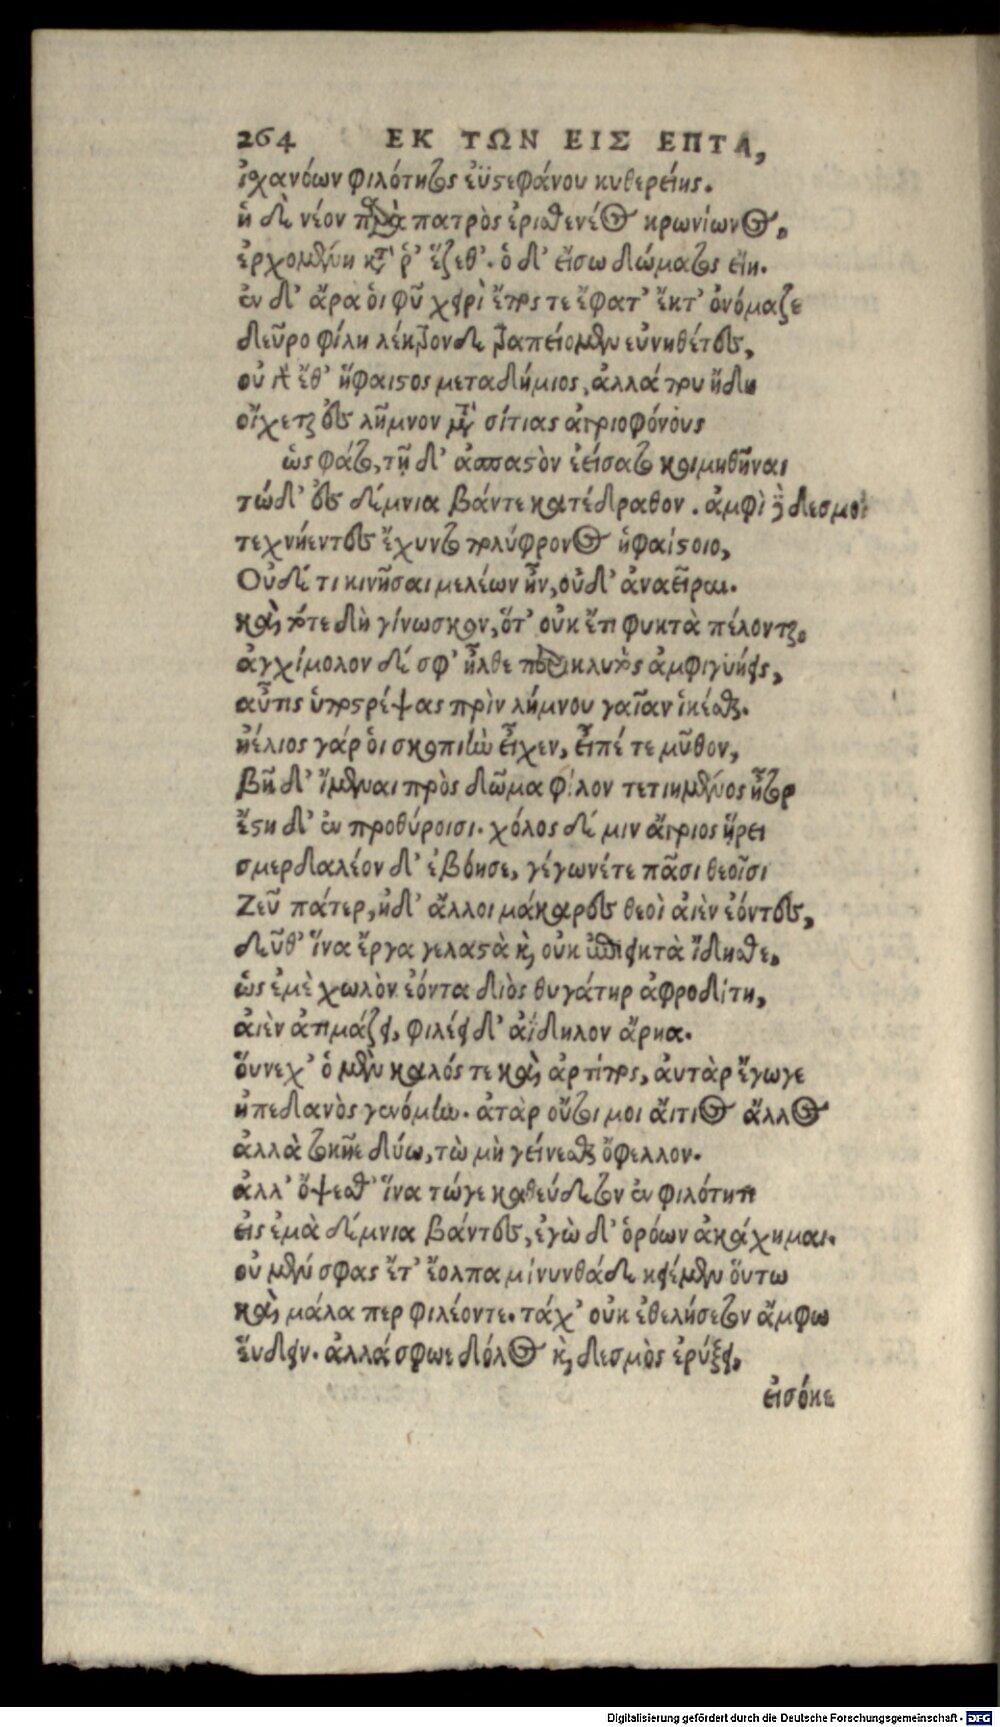 264 ΕΚ ΤΩΝ ΕΙΣ ΕΠΤΑ,
ἰχανόων φιλότητος ἐϋστεφάνου κυθερείης.
ἡ δὲ νέον παρὰ πατρὸς ἐρισθενέος κρωνίωνος,
ἐρχομένη κατ' ῥ' ἕζεθ'. ὁ δ' εἴσω δώματος εἴη.
ἐν δ' ἄρα ὁι φῦ χειρὶ ἔπος τε ἔφατ' ἔκτ' ὀνόμαζε
δεῦρο φίλη λέκτρονδε τραπείομεν εὐνηθέντες,
οὐ γὰρ ἔθ' ἥφαιστος μεταδήμιος, ἀλλά που ἤδη
οἴχεται ἐς λῆμνον μετὰ σίτιας ἀγριοφόνους
ὡς φάτο, τῇ δ' ἀσπαστὸν ἐείσατο κοιμηθῆναι
τώδ' ἐς δέμνια βάντε κατέδραθον. ἀμφὶ δὲ δεσμοὶ
τεχνήεντες ἔχυντο πολύφρονος ἡφαίστοιο,
Οὐδέ τι κινῆσαι μελέων ἦν, οὐδ' ἀναεῖραι.
καὶ τότε δὴ γίνωσκον, ὅτ' οὐκ ἔτι φυκτὰ πέλονται.
ἀγχίμολον δέ σφ' ἦλθε περικλυτὸς ἀμφιγυήεις,
αὖτις ὑποστρέψας πρὶν λήμνου γαῖαν ἱκέσθαι.
ἠέλιος γάρ ὁι σκοπιὴν εἶχεν, εἶπέ τε μῦθον,
βῆ δ' ἴμεναι πρὸς δῶμα φίλον τετιημένος ἦτορ
ἔστη δ' ἐν προθύροισι. χόλος δέ μιν ἄγριος ᾕρει
σμερδαλέον δ' ἐβόησε, γέγωνέτε πᾶσι θεοῖσι
Ζεῦ πάτερ, ἠδ' ἄλλοι μάκαρες θεοὶ ἀιὲν ἐόντες,
δεῦθ' ἵνα ἔργα γελαστὰ καὶ οὐκ ἐπιεικτὰ ἴδησθε.
ὡς ἐμὲ χωλὸν ἐόντα διὸς θυγάτηρ ἀφροδίτη,
ἀιὲν ἀτιμάζει, φιλέει δ' ἀΐδηλον ἄρηα.
ὅυνεχ' ὁ μὲν καλός τε καὶ ἀρτίπος, ἀυτὰρ ἔγωγε
ἠπεδανὸς γενόμην. ἀτὰρ οὔτι μοι ἄιτιος ἄλλος
ἀλλὰ τοκῆε δύω, τὼ μὴ γείνεσθαι ὄφελλον.
ἀλλ' ὄψεσθ' ἵνα τώγε καθεύδετον ἐν φιλότητι
εἰς ἐμὰ δέμνια βάντες, ἐγὼ δ' ὁρόων ἀκάχημαι.
οὐ μέν σφας ἔτ' ἔολπα μίνυνθάδε κείμεν ὅυτω
καὶ μάλα περ φιλέοντε. τάχ' οὐκ ἐθελήσετον ἄμφω
ἕυδειν. ἀλλά σφωε δόλος καὶ δεσμὸς ἐρύξει,
εἰσόκε
Digitalisierung gefördert durch die Deutsche Forschungsgemeinschaft - DFG